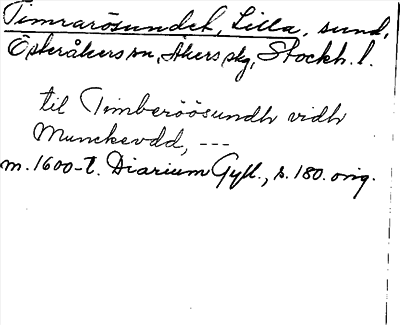 Timrarösundet, Lilla, sund,
Österåkers sn, Åkers skg, Stockh. l.
til Timberöösundh vidh
Munckevdd, ---
m. 1600-t. Diarium Gyll., s. 180. orig.